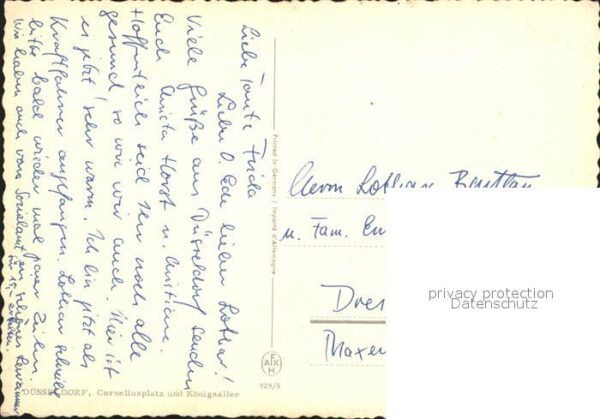 Liebe Tante Frida
Lieber O. Ede lieber Lothar!
Viele Grüße aus Düsseldorf senden
Euch Anita Horst u. Christine.
Hoffentlich seid Ihr noch alle
gesund so wie wir auch. Hier ist
es jetzt sehr warm. Ich bin jetzt als
Kraftfahrer angefangen. Lothar schreibe
bitte bald wieder mal paar Zeilen.
Wir haben auch vom Sozialamt ein schönes
erhalten.
Printed in Germany / Imprimé d'Allemagne
Herrn Lothar
u. Fam.
Dres
Maxe
privacy protection
Datenschutz
AFKH
929/5
DÜSSELDORF, Corneliusplatz und Königsallee